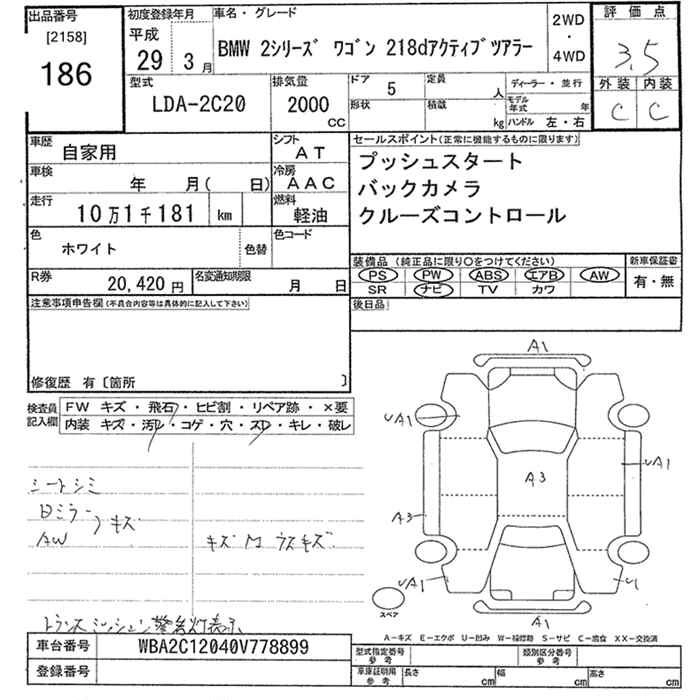 出品番号
[2158]
186
初度登録年月
平成
29 3月
車名・グレード
BMW 2シリーズ ワゴン 218dアクティブツアラー
2WD
・
4WD
評価点
3.5
外装 内装
C C
型式
LDA-2C20
排気量
2000
CC
ドア 5
形状
定員 人
積載 kg
ディーラー・並行
モデル年式 年
ハンドル 左・右
車歴
自家用
シフト
AT
車検
年 月( 日)
冷房
AAC
走行
10万1千181 km
燃料
軽油
色
ホワイト
色替
色コード
R券 20,420円
名変通知期限 月 日
セールスポイント(正常に機能するものに限ります)
プッシュスタート
バックカメラ
クルーズコントロール
装備品 (純正品に限り○をつけてください)
PS PW ABS エアB AW
SR ナビ TV カワ
新車保証書
有・無
後日品
注意事項申告欄(不具合内容等は具体的に記入して下さい)
修復歴 有〔箇所 〕
検査員記入欄
FW キズ・飛石・ヒビ割・リペア跡・×要
内装 キズ・汚レ・コゲ・穴・スレ・キレ・破レ
シートシミ
日ミラー
AW
キズ
キズ M ラスキズ
トランスミッション警告灯表示
A1
UA1
UA1
A3
A3
UA1
U1
A1
スペア
A-キズ E-エクボ U-凹み W-補修跡 S-サビ C-腐食 XX-交換済
車台番号 WBA2C12040V778899
登録番号
型式指定番号 参考
類別区分番号 参考
車庫証明用 参考
長さ cm
幅 cm
高さ cm